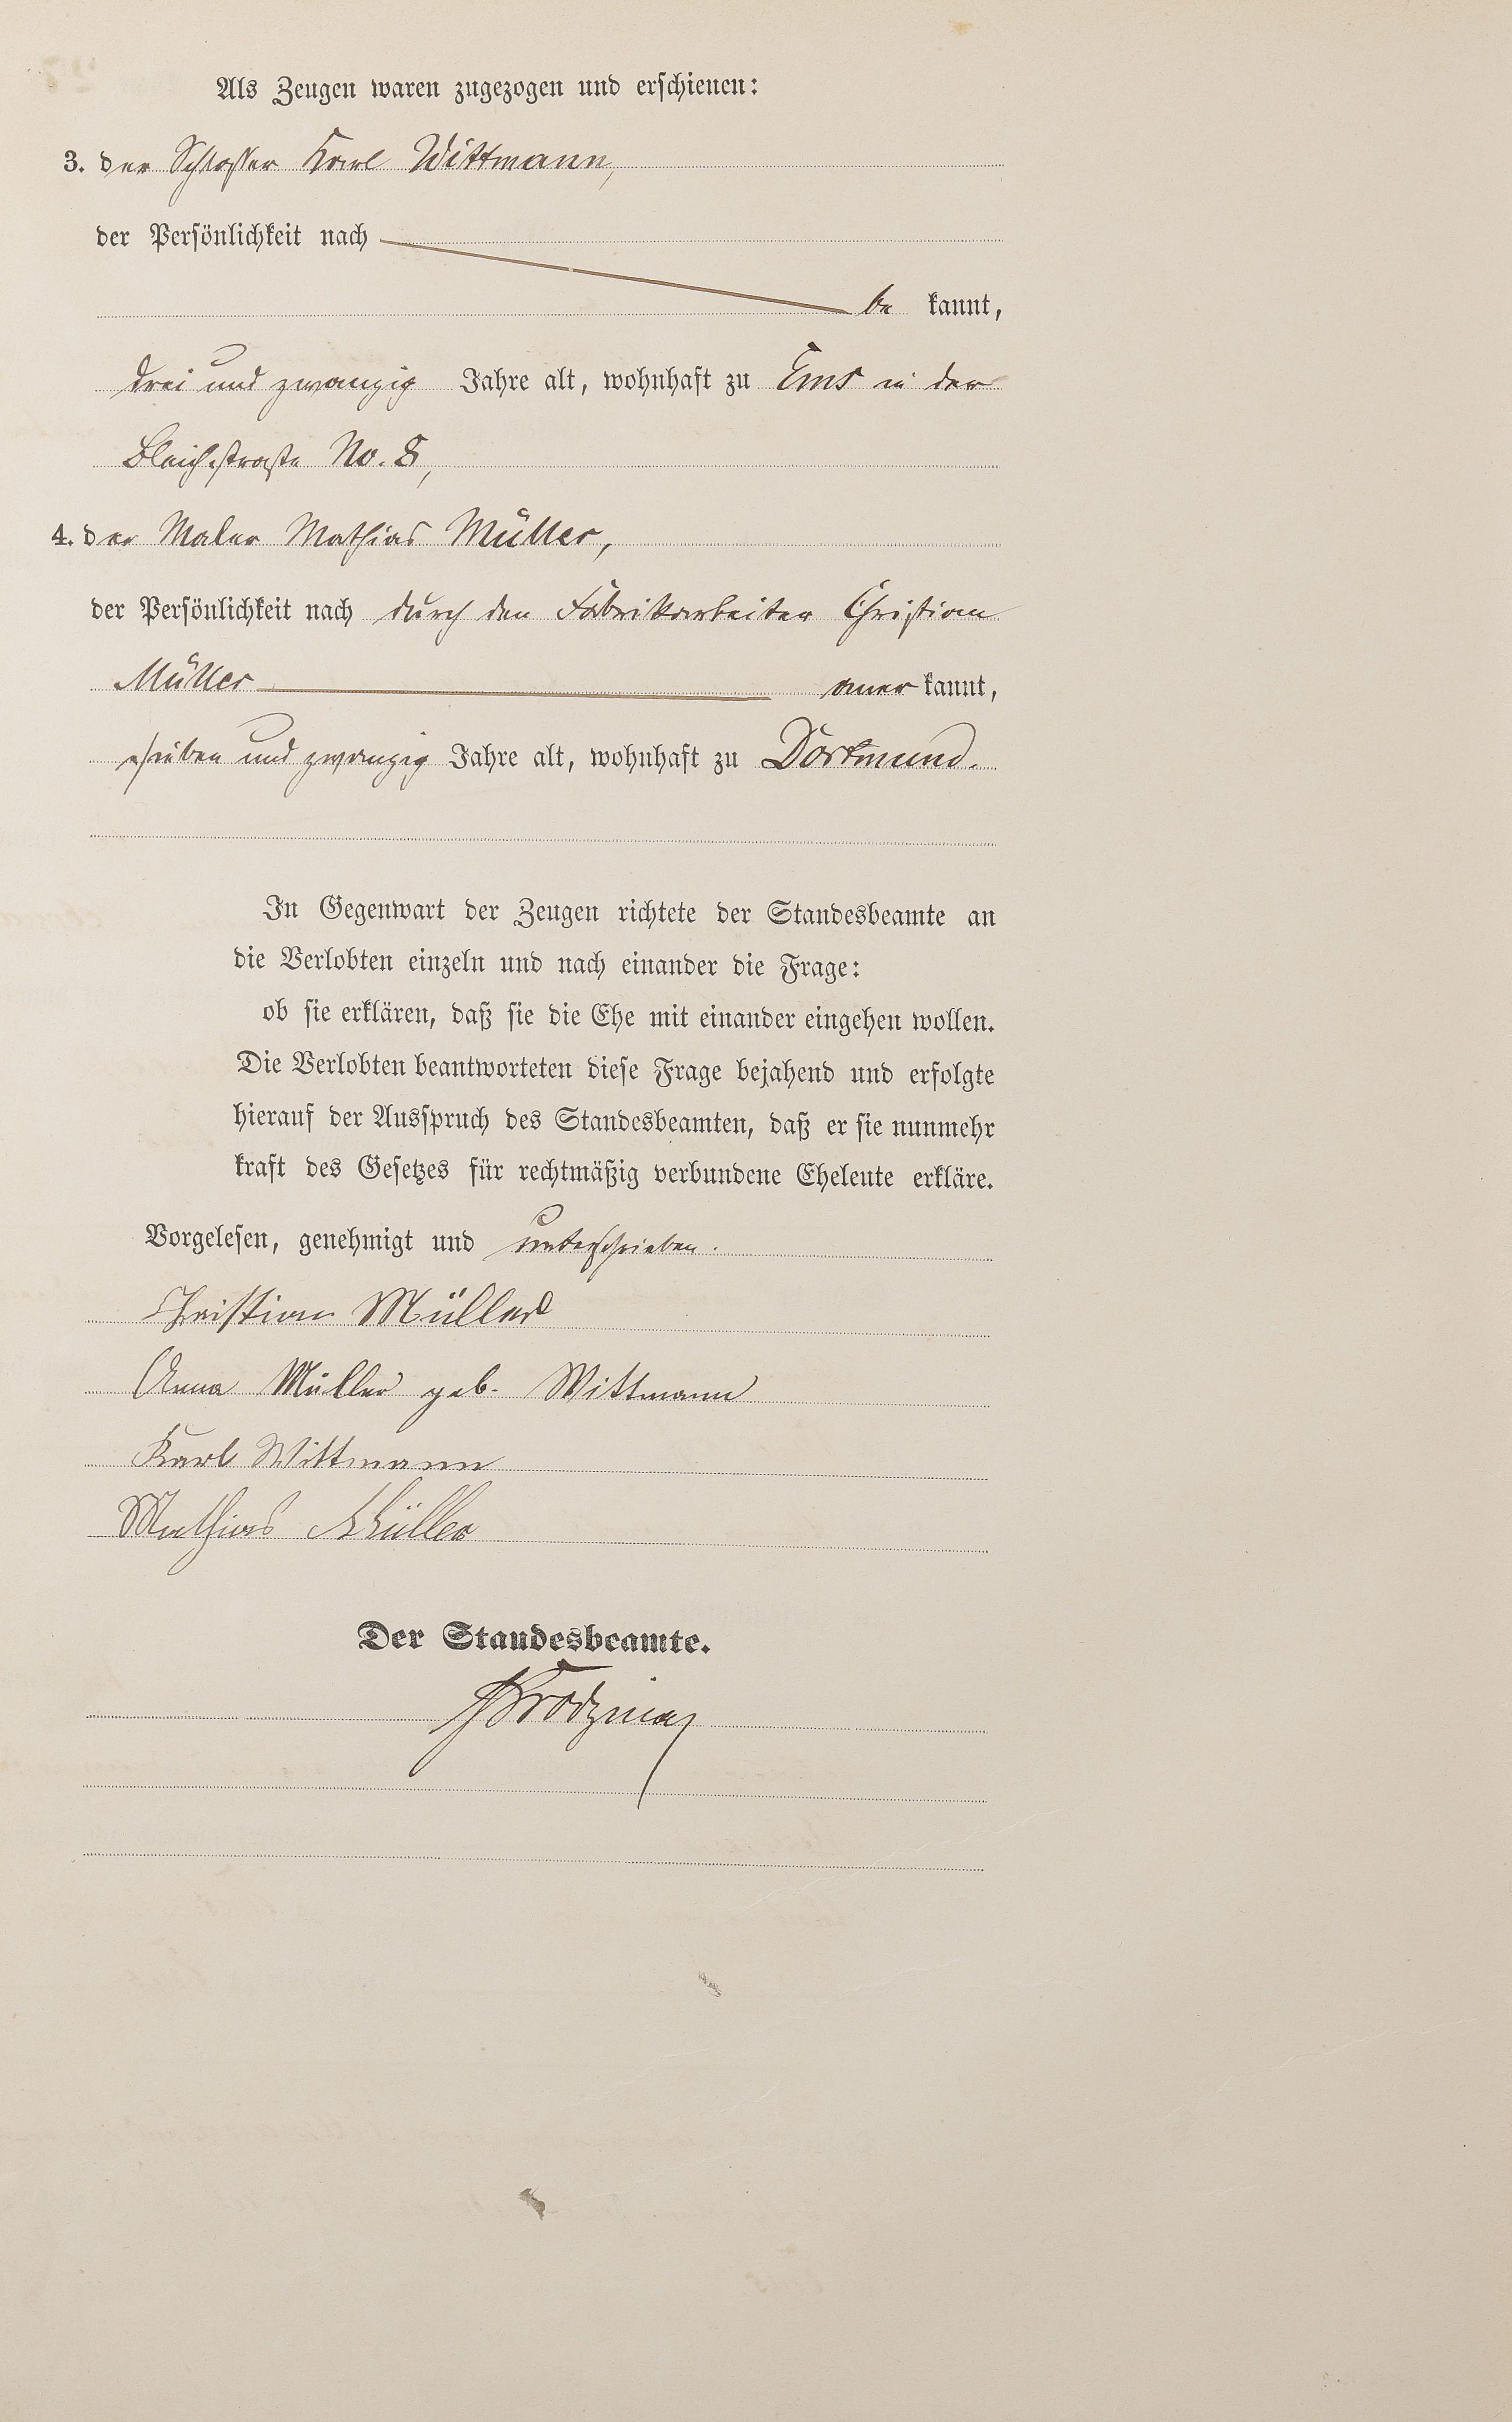 Als Zeugen waren zugezogen und erschienen:
3. der Schlosser Karl Wittmann,
der Persönlichkeit nach
be kannt,
drei und zwanzig Jahre alt, wohnhaft zu Ems in der
Bleichstraße No. 8,
4. der Maler Mathias Müller,
der Persönlichkeit nach durch den Fabrikarbeiter Christian
Müller aner kannt,
sieben und zwanzig Jahre alt, wohnhaft zu Dortmund.
In Gegenwart der Zeugen richtete der Standesbeamte an
die Verlobten einzeln und nach einander die Frage:
ob sie erklären, daß sie die Ehe mit einander eingehen wollen.
Die Verlobten beantworteten diese Frage bejahend und erfolgte
hierauf der Ausspruch des Standesbeamten, daß er sie nunmehr
kraft des Gesetzes für rechtmäßig verbundene Eheleute erkläre.
Vorgelesen, genehmigt und unterschrieben.
Christian Müller
Anna Müller geb. Wittmann
Karl Wittmann
Mathias Müller
Der Standesbeamte.